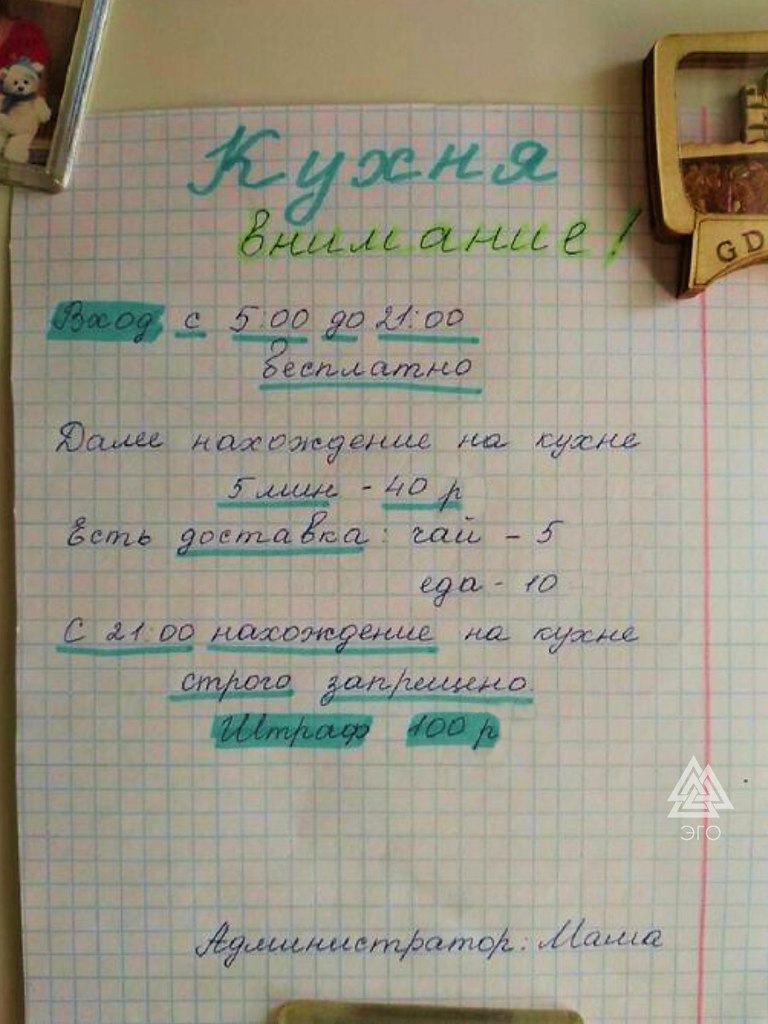 Кухня
внимание!
Вход с 5:00 до 21:00
бесплатно
Далее нахождение на кухне
5 мин - 40 р
Есть доставка: чай - 5
еда - 10
С 21:00 нахождение на кухне
строго запрещено.
Штраф 100 р
Администратор: Мама
GD
ЭГО